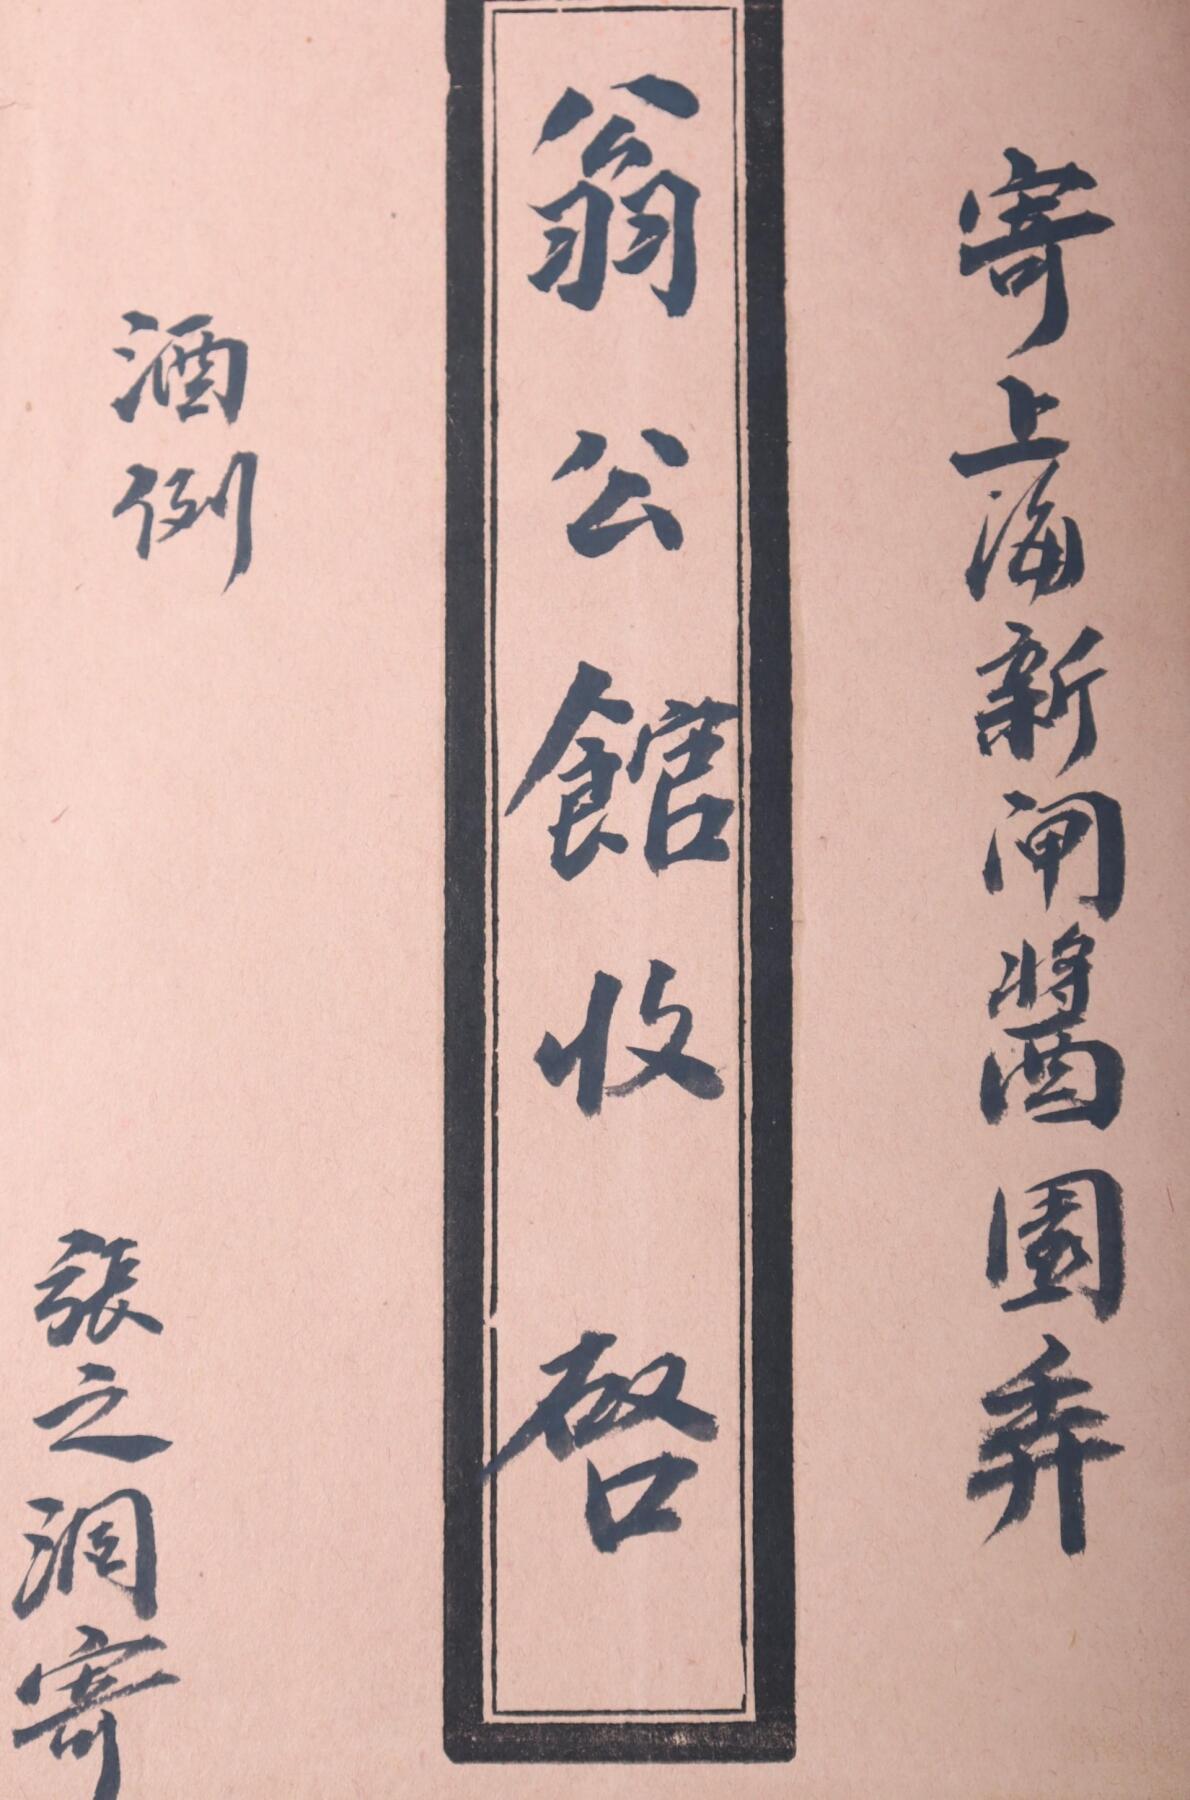 寄上海新闸醬園弄
翁公館收啓
酒例
張之洞寄